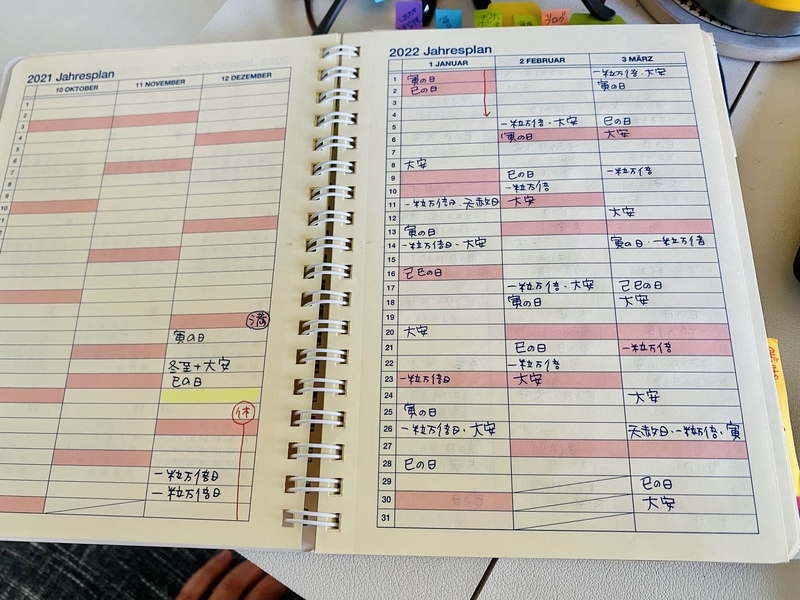 2021 Jahresplan
10 OKTOBER 11 NOVEMBER 12 DEZEMBER
満
寅の日
冬至+大安
巳の日
休
一粒万倍日
一粒万倍日
2022 Jahresplan
1 JANUAR 2 FEBRUAR 3 MÄRZ
1 寅の日 一粒万倍・大安
2 巳の日 寅の日
3
4
5 一粒万倍・大安 巳の日
6 寅の日 大安
7
8 大安
9 巳の日 一粒万倍
10 一粒万倍
11 一粒万倍日・天赦日 大安
12 大安
13 寅の日
14 一粒万倍日・大安 寅の日・一粒万倍
15
16 己巳の日
17 一粒万倍・大安 己巳の日
18 寅の日 大安
19
20 大安
21 巳の日 一粒万倍
22 一粒万倍
23 一粒万倍日 大安
24 大安
25 寅の日
26 一粒万倍日・大安 天赦日・一粒万倍・寅
27
28 巳の日
29 巳の日
30 大安
31